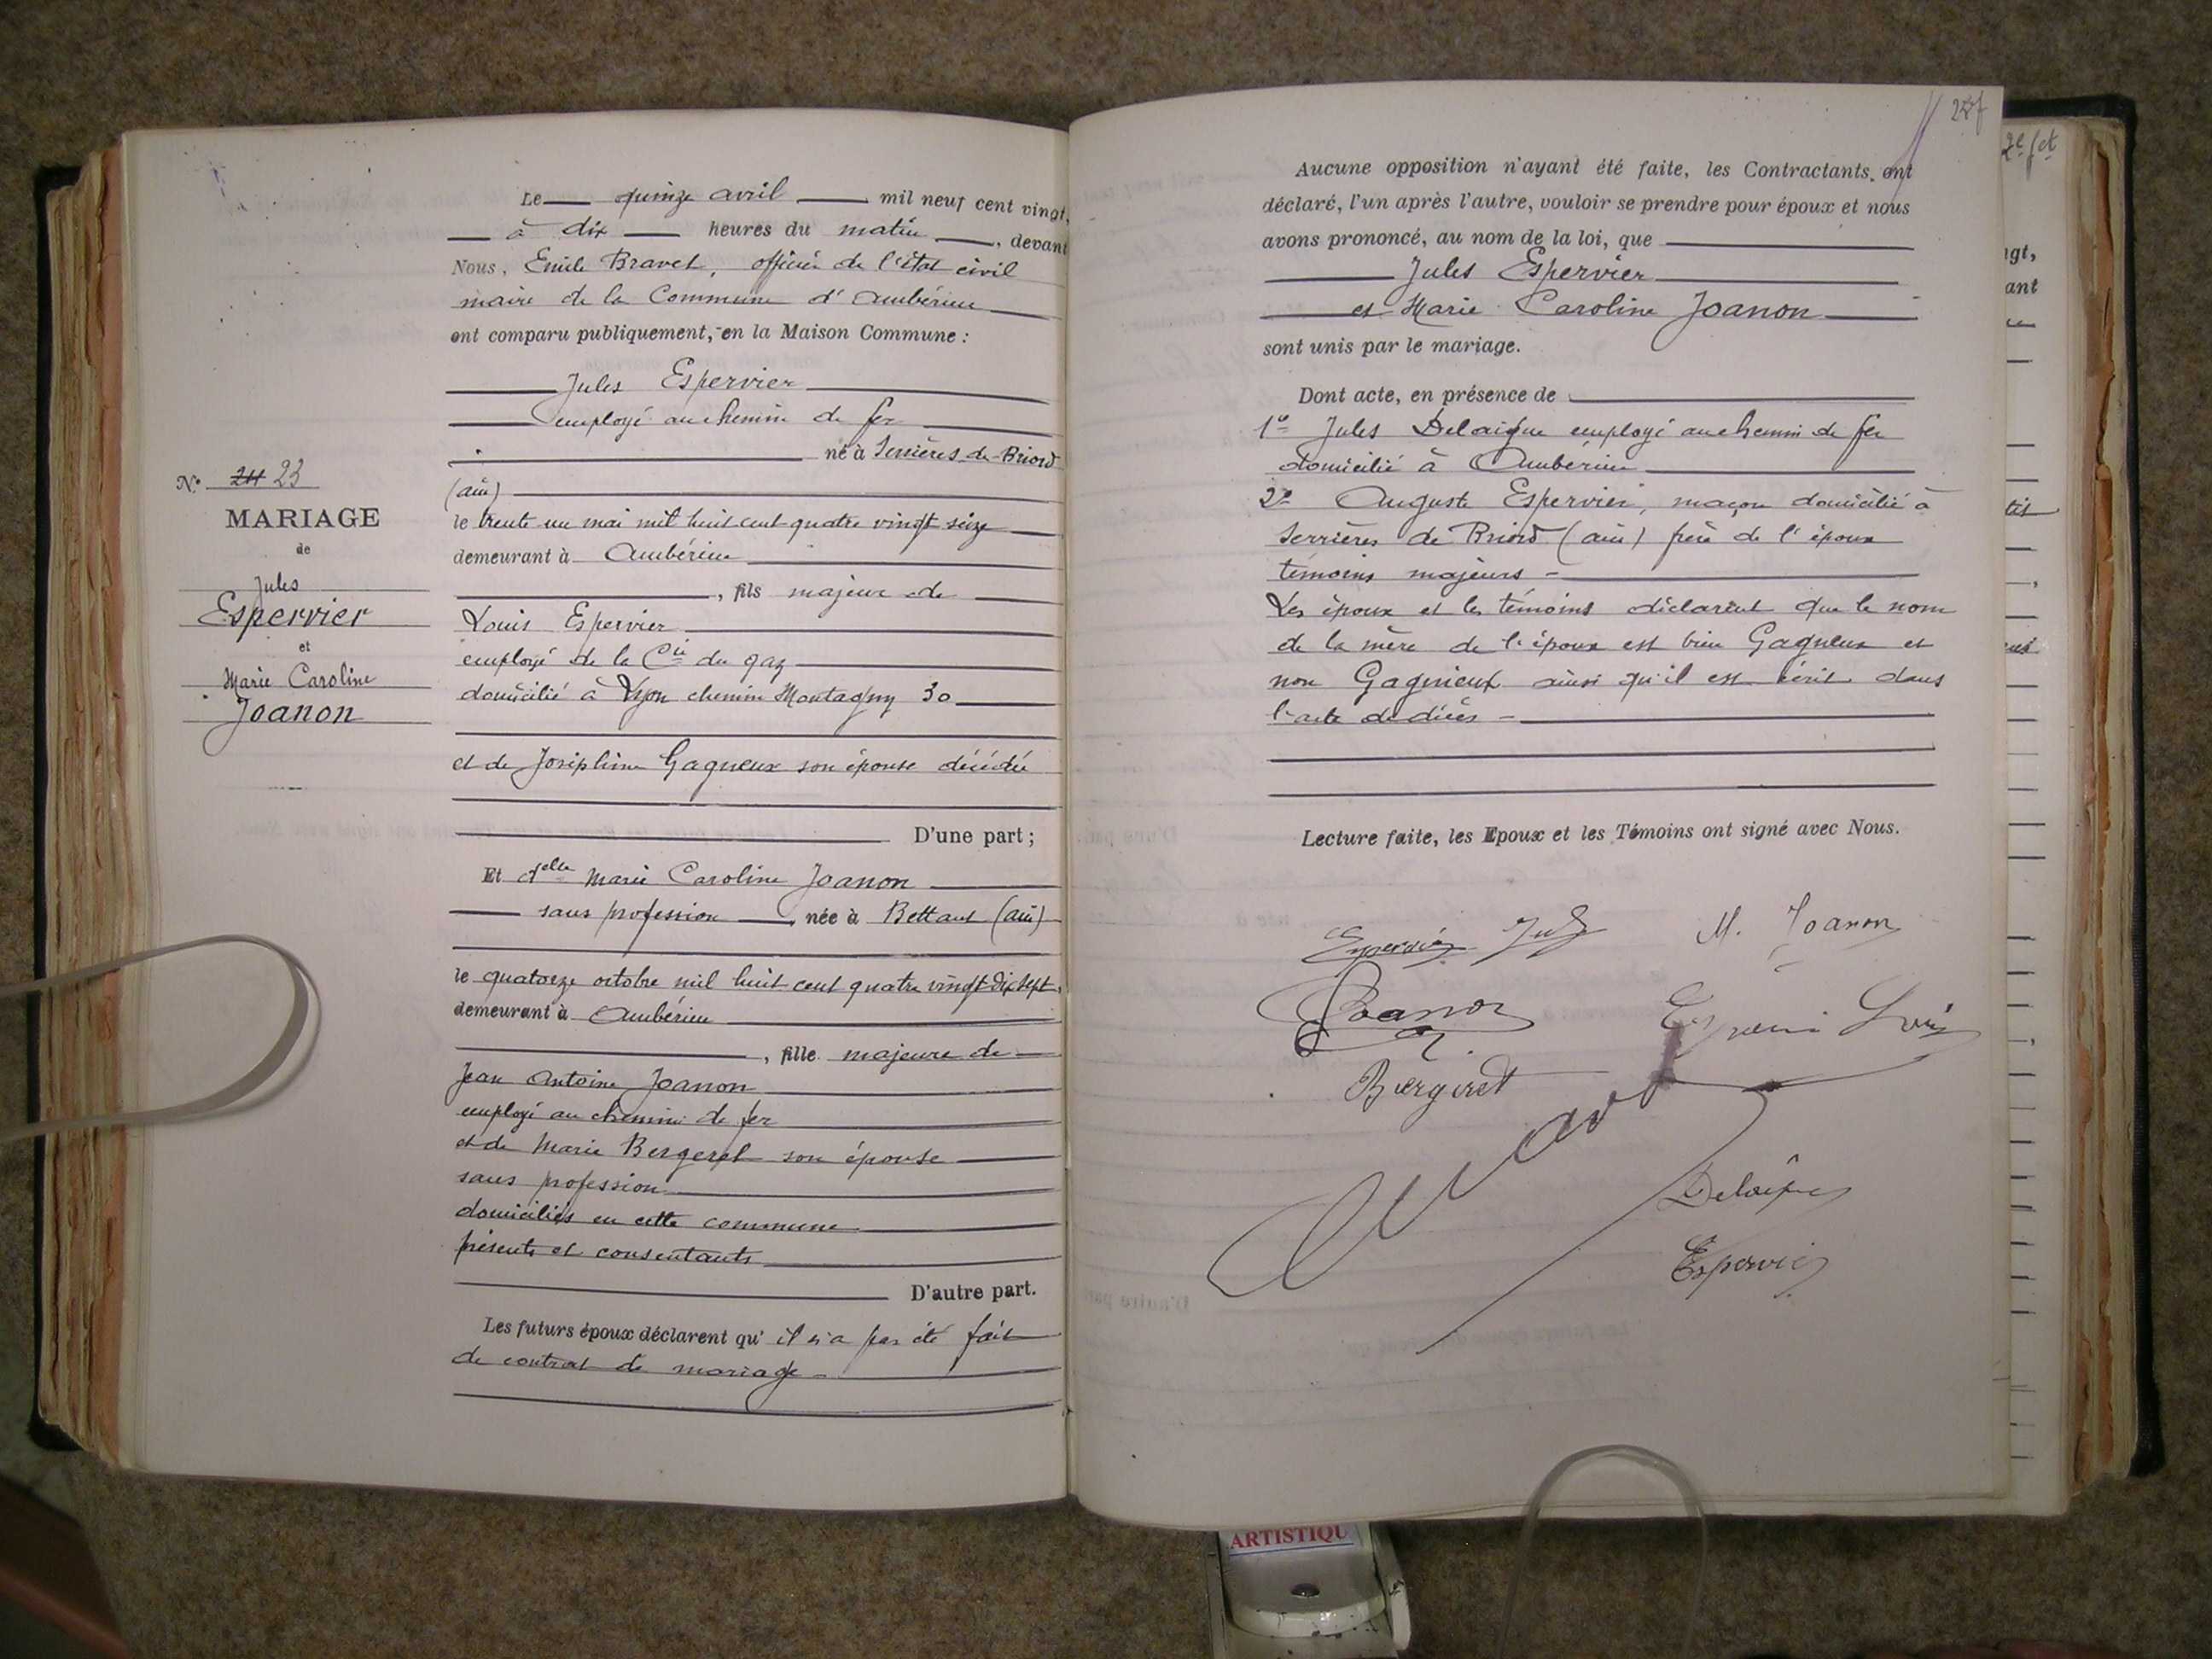 N° 24 23
MARIAGE
de
Jules
Espervier
et
Marie Caroline
Joanon
Le quinze avril mil neuf cent vingt,
à dix heures du matin, devant
Nous, Emile Bravet, officier de l'état civil
maire de la Commune d'Ambérieu
ont comparu publiquement, en la Maison Commune :
Jules Espervier
employé au chemin de fer
né à Serrières-de-Briord
(ain)
le trente un mai mil huit cent quatre vingt seize
demeurant à Ambérieu
, fils majeur de
Louis Espervier
employé de la Cie du gaz
domicilié à Lyon chemin Montagny 30
et de Joséphine Gagneux son épouse décédée
D'une part ;
Et delle Marie Caroline Joanon
sans profession, née à Bettant (ain)
le quatorze octobre mil huit cent quatre vingt dix sept,
demeurant à Ambérieu
, fille majeure de
Jean Antoine Joanon
employé au chemin de fer
et de Marie Bergeret son épouse
sans profession
domiciliés en cette commune
présents et consentants
D'autre part.
Les futurs époux déclarent qu'il n'a pas été fait
de contrat de mariage -
Aucune opposition n'ayant été faite, les Contractants ont
déclaré, l'un après l'autre, vouloir se prendre pour époux et nous
avons prononcé, au nom de la loi, que
Jules Espervier
et Marie Caroline Joanon
sont unis par le mariage.
Dont acte, en présence de
1° Jules Delaigue employé au chemin de fer
domicilié à Ambérieu
2° Auguste Espervier, maçon domicilié à
Serrières de Briord (ain) frère de l'époux
témoins majeurs -
Les époux et les témoins déclarent que le nom
de la mère de l'époux est bien Gagneux et
non Gagnieux ainsi qu'il est écrit dans
l'acte de décès -
Lecture faite, les Epoux et les Témoins ont signé avec Nous.
Espervier Jules
M. Joanon
Joanon
Espervier Louis
Bergeret
Bravet
Delaigue
Espervier
2e fet
ngt,
ant
ARTISTIQU